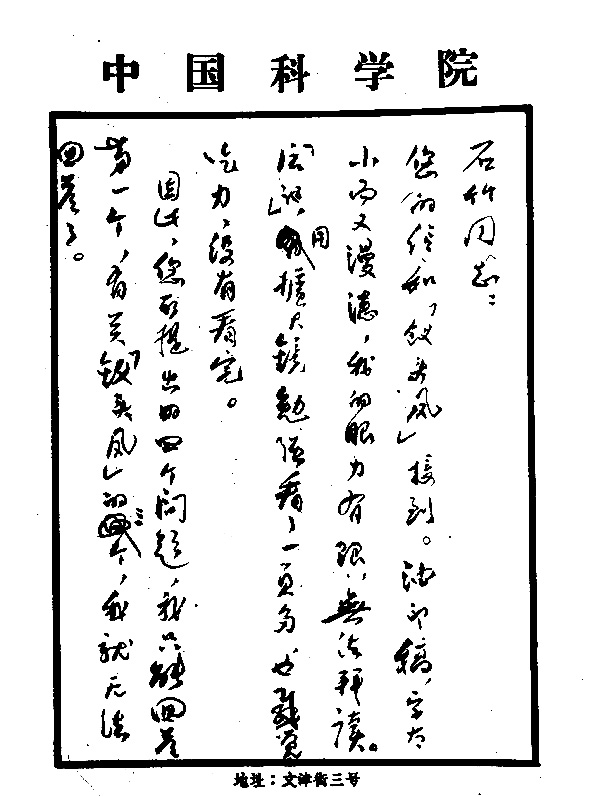 中国科学院
石竹同志：
您的信和「钗头凤」接到。油印稿，字太
小而又漫漶，我的眼力有限，無法拜读。
用擴大鏡勉强看了一页多也感觉
吃力，没有看完。
因此，您所提出的四个问题，我只能回答
第一个，有关「钗头凤」的三个，我就无法
回答了。
地址：文津街三号